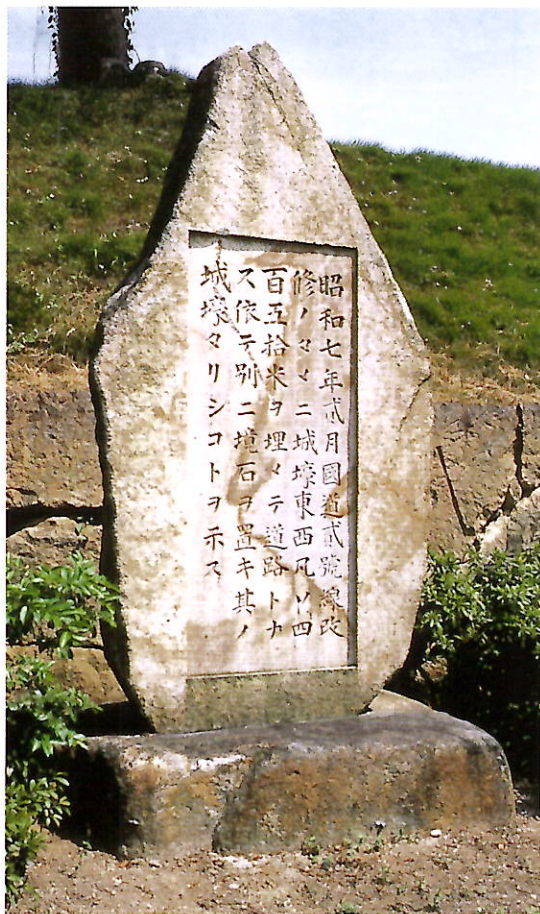 昭和七年貳月國道貳號線改
修ノタメニ城壕東西凡ソ四
百五拾米ヲ埋メテ道路トナ
ス依テ別ニ境石ヲ置キ其ノ
城壕タリシコトヲ示ス